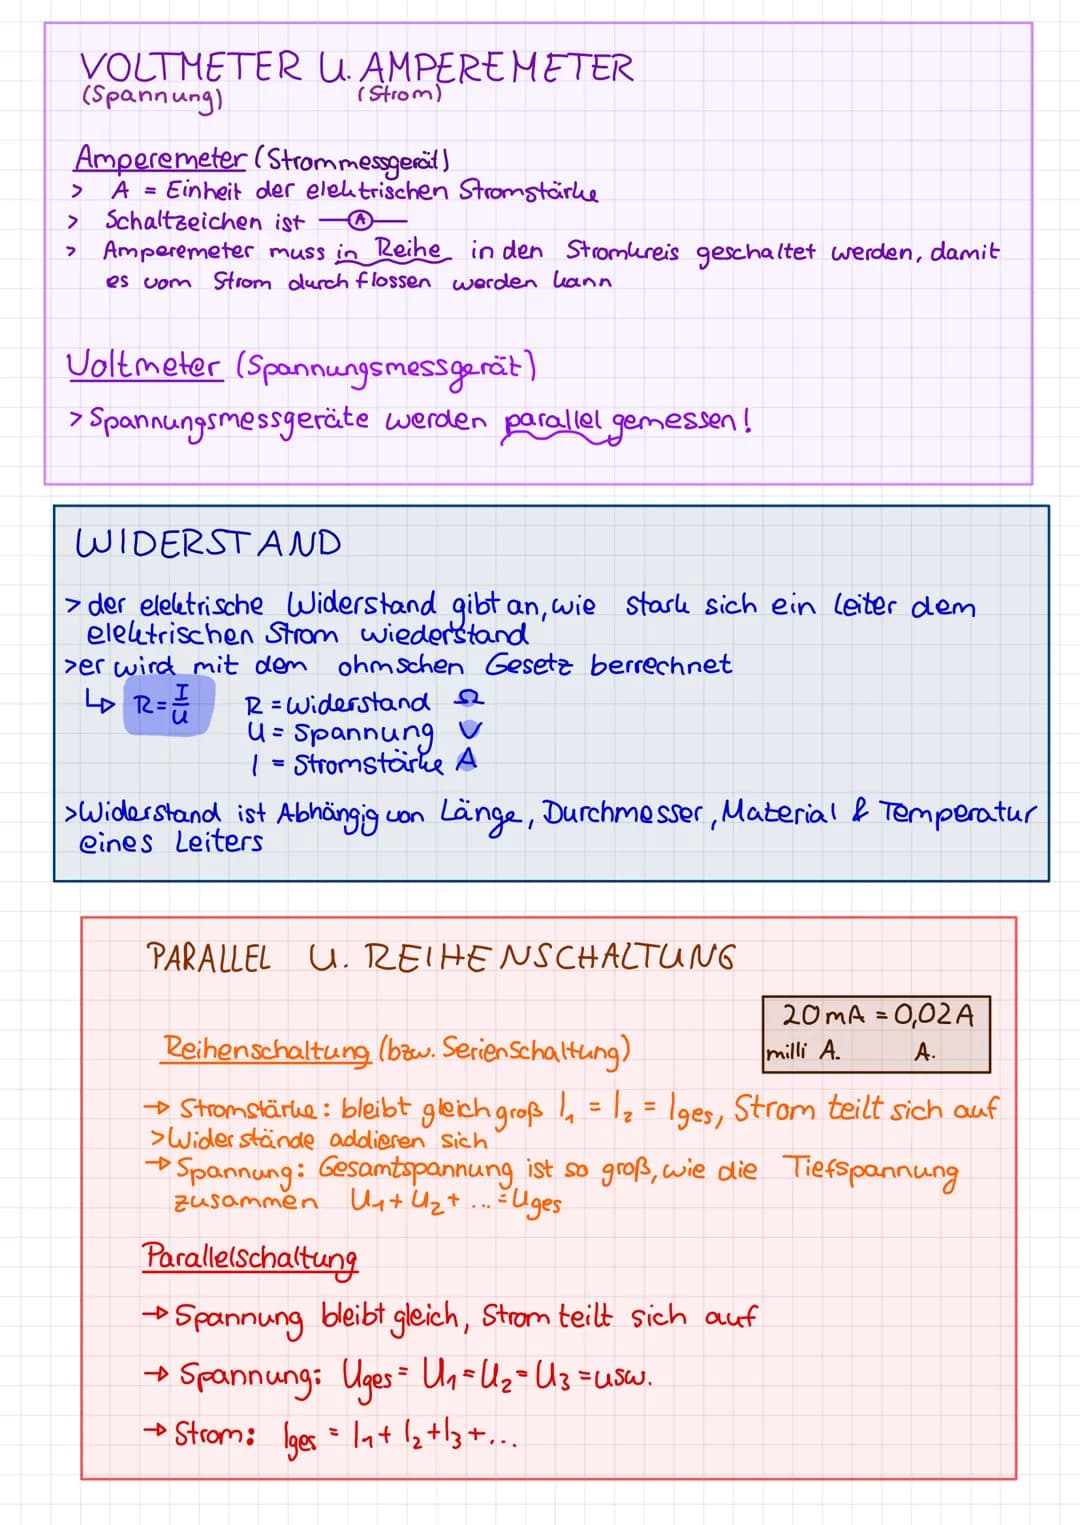 VOLTMETER U. AMPEREMETER
(Spannung) (Strom)
Amperemeter (Strommessgerät)
> A = Einheit der elektrischen Stromstärke
> Schaltzeichen ist —Ⓐ—
> Amperemeter muss in Reihe in den Stromkreis geschaltet werden, damit
es vom Strom durchflossen werden kann
Voltmeter (Spannungsmessgerät)
> Spannungsmessgeräte werden parallel gemessen!
WIDERSTAND
> der elektrische Widerstand gibt an, wie stark sich ein Leiter dem
elektrischen Strom wiederstand
> er wird mit dem ohmschen Gesetz berrechnet
↳ R = I/U R = Widerstand Ω
U = Spannung V
I = Stromstärke A
> Widerstand ist Abhängig von Länge, Durchmesser, Material & Temperatur
eines Leiters
PARALLEL U. REIHENSCHALTUNG
20 mA = 0,02 A
milli A. A.
Reihenschaltung (bzw. Serienschaltung)
→ Stromstärke: bleibt gleich groß I₁ = I₂ = Iges, Strom teilt sich auf
> Widerstände addieren sich
→ Spannung: Gesamtspannung ist so groß, wie die Tiefspannung
zusammen U₁ + U₂ + ... = Uges
Parallelschaltung
→ Spannung bleibt gleich, Strom teilt sich auf
→ Spannung: Uges = U₁ = U₂ = U₃ = usw.
→ Strom: Iges = I₁ + I₂ + I₃ + ...